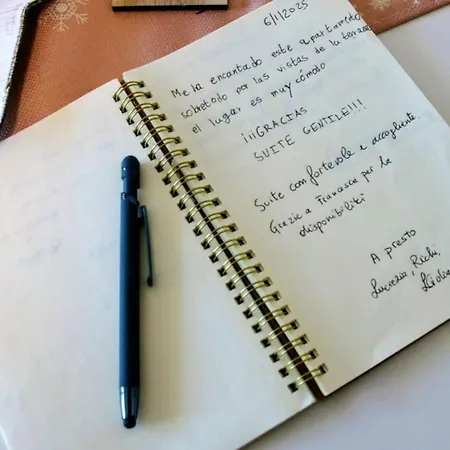 6/1/2025
Me ha encantado este apartamento
sobretodo por las vistas de la terraza
el lugar es muy cómodo
¡¡¡GRACIAS
SUITE GENTILE!!!
Suite confortevole e accogliente.
Grazie a Francesca per la
disponibilità
A presto
Lucrezia, Richi,